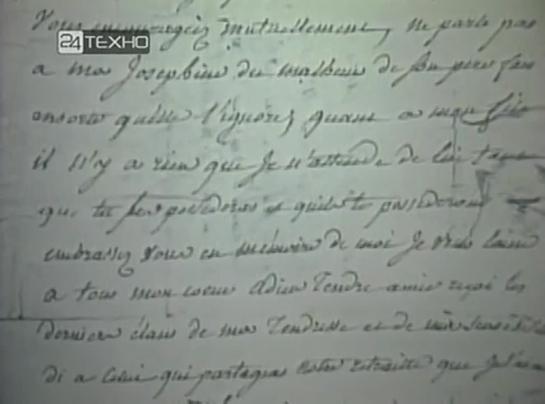 24 ТЕХНО
Vous encouragez mutuellement, ne parle pas
a ma Josephine du malheur de son pere fais
ensorte quelle l'ignorez quant a mon fils
il n'y a rien que Je n'attende de lui tant
que tu les possederas et quils te possederont
embrassez vous en mémoire de moi Je vous laisse
a tous mon coeur adieu Tendre amie reçoi les
derniers élans de ma Tendresse et de
di a celui qui partagera votre retraite que Je